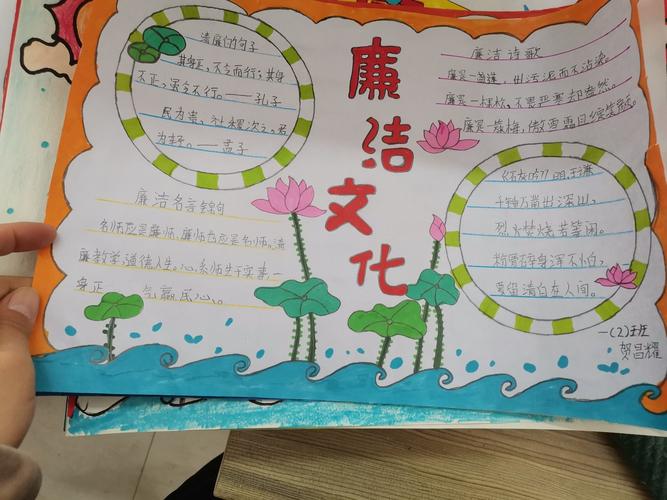 清廉的句子
其身正，不令而行；其身
不正，虽令不行。——孔子
民为贵，社稷次之，君
为轻。——孟子
廉洁文化
廉洁诗歌
廉实一莲蓬，出污泥而不沾染。
廉实一棵松，不畏严寒却盎然。
廉实一簇梅，傲雪霜且绽笑颜。
廉洁名言锦句
名师应是廉师，廉师当应是名师。清
廉教学，道德人生。心系师生干实事一
身正 气赢民心。
《石灰吟》明 于谦
千锤万凿出深山，
烈火焚烧若等闲。
粉骨碎身浑不怕，
要留清白在人间。
一(2)班
贺昌耀